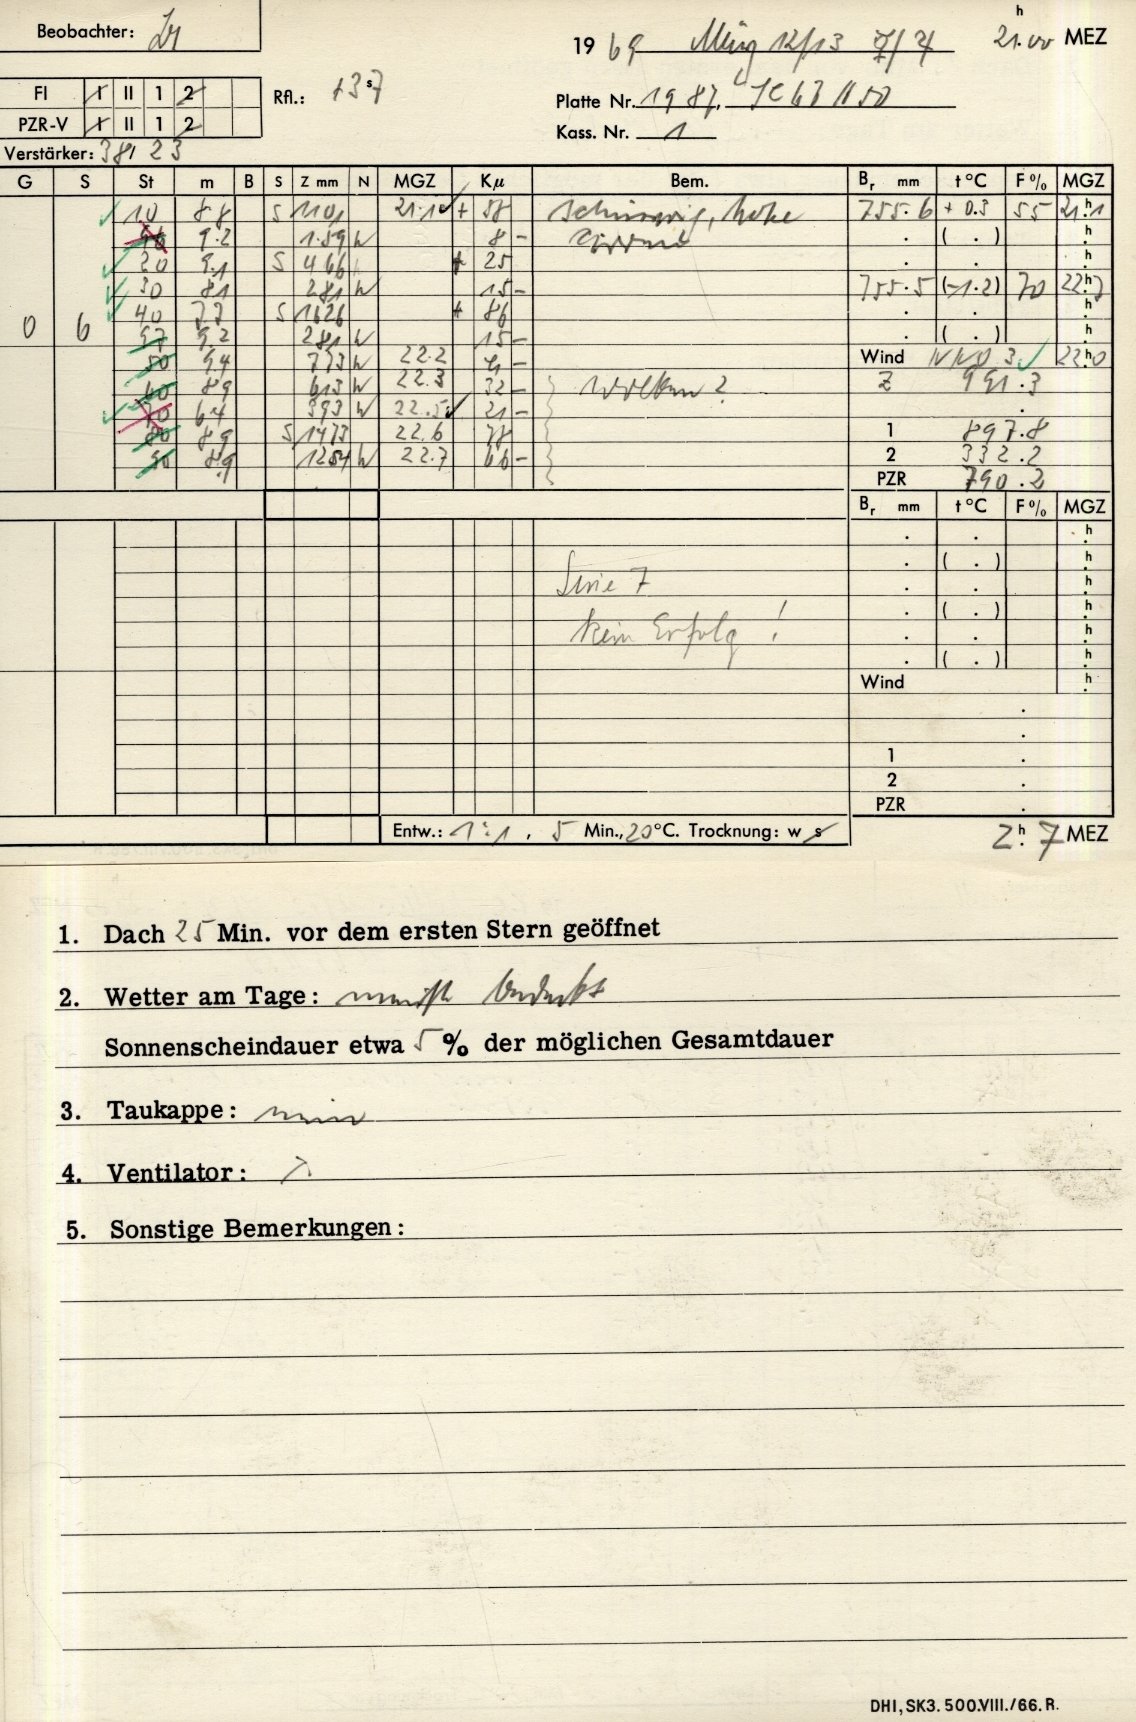 Beobachter:
19 69 März 12/13 21.00 h MEZ
FI I II 1 2
Rfl.: +3 s 7
Platte Nr. 1987,
PZR-V I II 1 2
Kass. Nr. 1
Verstärker: 38/ 23
G S St m B S Z mm N MGZ Kµ Bem. Br mm t°C F% MGZ
10 8.8 S 1101 21.1 + 58 schlierig, hohe 755.6 +0.3 55 21h1
9.2 1159 W 8 - ( . ) h
20 9.1 S 466 + 25 h
30 8.1 281 W 15 - 755.5 (-1.2) 70 22h7
40 7.7 S 1626 + 86 h
0 6 97 9.2 281 W 15 - ( . ) h
50 9.4 773 W 22.2 Wind 3 22h0
60 8.9 613 W 22.3 32 - Wolken? Z 991.3
70 6.4 393 W 22.5 21 -
80 8.9 S 1473 22.6 78 1 897.8
90 8.9 1254 W 22.7 66 - 2 332.2
PZR 790.2
Br mm t°C F% MGZ
h
( . ) h
Serie 7 h
( . ) h
kein Erfolg! h
( . ) h
Wind h
1
2
PZR
Entw.: 1:1, 5 Min., 20°C. Trocknung: w s 2h.7 MEZ
1. Dach 25 Min. vor dem ersten Stern geöffnet
2. Wetter am Tage: meist bedeckt
Sonnenscheindauer etwa 5% der möglichen Gesamtdauer
3. Taukappe: nein
4. Ventilator:
5. Sonstige Bemerkungen:
DHI, SK3. 500.VIII./66. R.